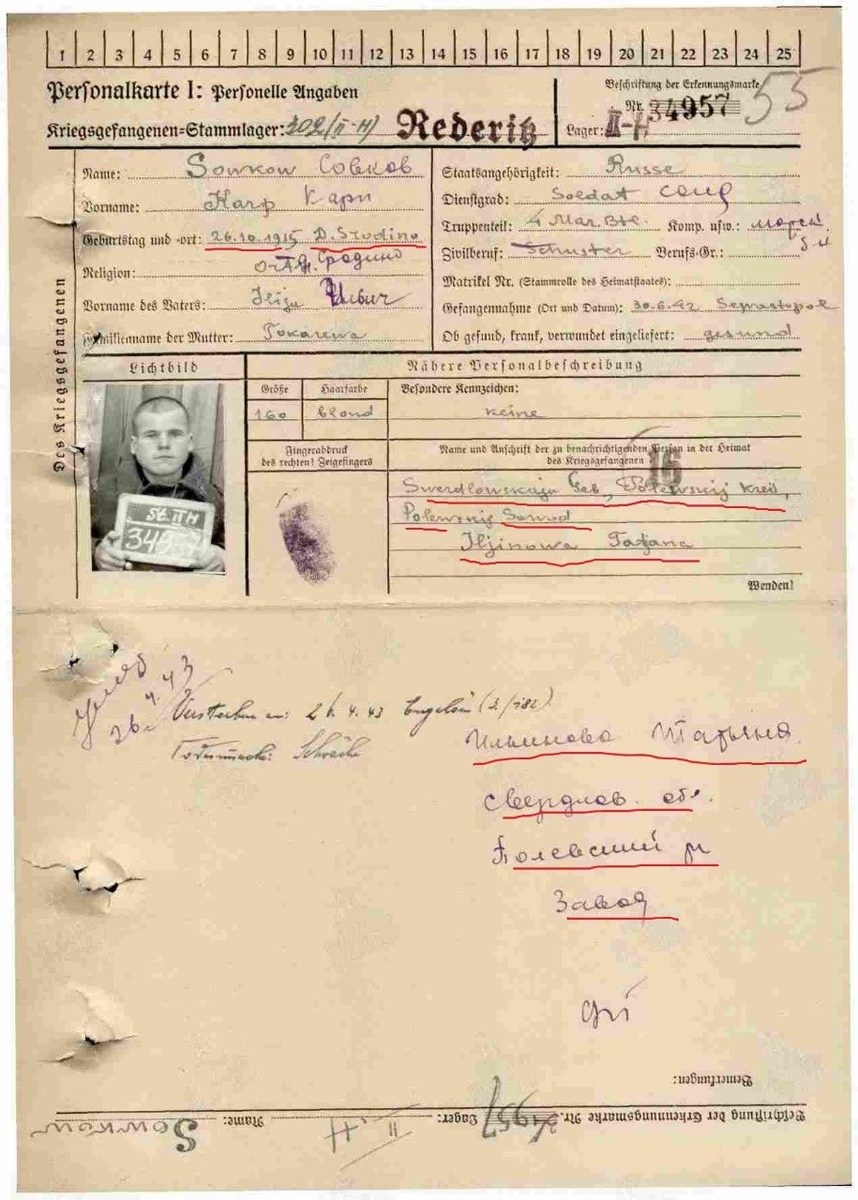 1 2 3 4 5 6 7 8 9 10 11 12 13 14 15 16 17 18 19 20 21 22 23 24 25
Personalkarte I: Personelle Angaben
Kriegsgefangenen-Stammlager: 302/(II-H) Rederitz
Beschriftung der Erkennungsmarke
Nr. 34957 55
Lager: II-H
Des Kriegsgefangenen
Name: Sowkow Совков
Vorname: Karp Карп
Geburtstag und -ort: 26.10.1915 D. Srodino
Religion: orth. Сродино
Vorname des Vaters: Ilija
Familienname der Mutter: Tokarewa
Staatsangehörigkeit: Russe
Dienstgrad: Soldat
Truppenteil: 4 Mar. Btl. Komp. usw.:
Zivilberuf: Schuster Berufs-Gr.:
Matrikel Nr. (Stammrolle des Heimatstaates):
Gefangennahme (Ort und Datum): 30.6.42 Sewastopol
Ob gesund, krank, verwundet eingeliefert: gesund
Lichtbild
St. II H
34957
Nähere Personalbeschreibung
Größe Haarfarbe Besondere Kennzeichen:
160 blond keine
Fingerabdruck
des rechten! Zeigefingers
Name und Anschrift der zu benachrichtigenden Person in der Heimat
des Kriegsgefangenen
16
Swerdlowskaja Geb, Polewskij Kreis,
Polewskij Sawod
Iljinowa Tatjana
Wenden!
26.4.43
Verstorben am: 26.4.43
Todesursache: Schwäche
Ильинова Татьяна
Свердлов. обл.
Полевский р
Завод
Bemerkungen:
Beschriftung der Erkennungsmarke Nr. 34957 Lager: II H Name: Sowkow